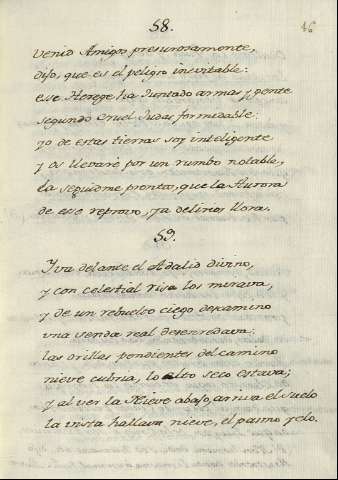 58.
46
venid Amigos presurosamente,
dijo, que es el peligro inevitable:
ese Herege ha Juntado armas y gente
segundo cruel Judas formidable:
yo de estas tierras soy inteligente
y os llevarè por un rumbo notable,
Ea seguidme prontos, que la Aurora
de ese reprovo, ya delirios llora.
59.
Yva delante el Adalid divino,
y con celestial risa los mirava,
y de un rebuelto ciego descamino
una senda real desenredava:
las orillas pendientes del camino
nieve cubria, lo alto seco estava;
y al ver la Nieve abajo, arriva el suelo
la vista hallava nieve, el pasmo yelo.